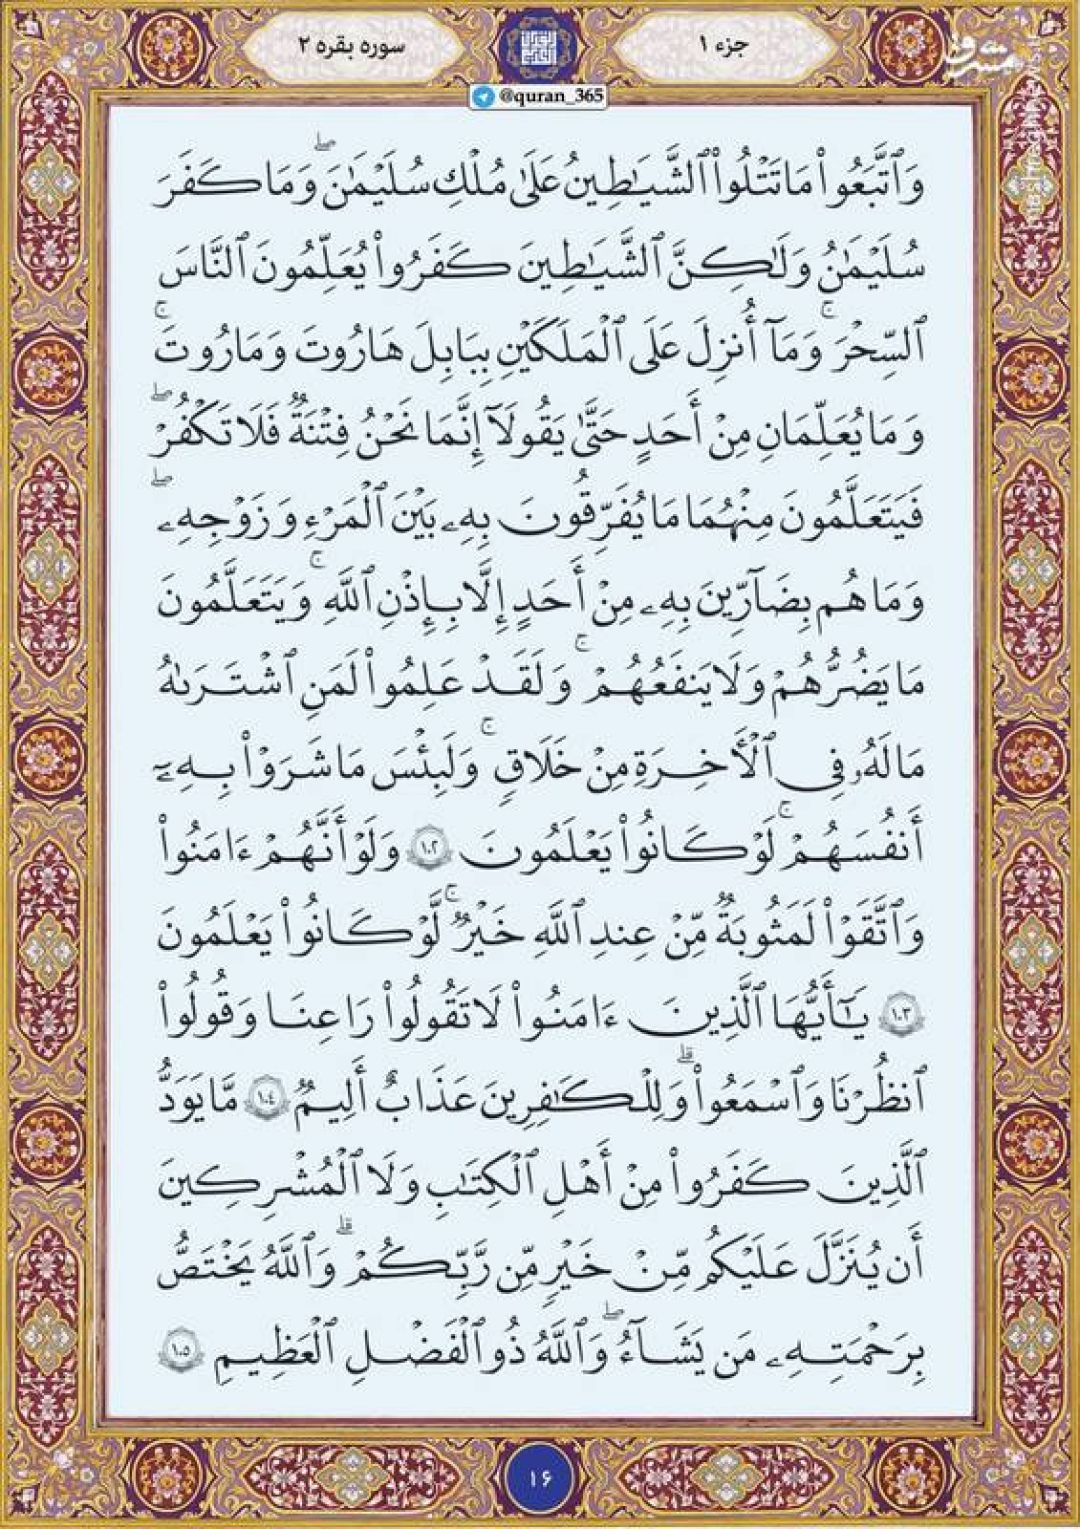 جزء ۱
سوره بقره ۲
@quran_365
وَٱتَّبَعُواْ مَا تَتْلُواْ ٱلشَّيَـٰطِينُ عَلَىٰ مُلْكِ سُلَيْمَـٰنَ ۖ وَمَا كَفَرَ
سُلَيْمَـٰنُ وَلَـٰكِنَّ ٱلشَّيَـٰطِينَ كَفَرُواْ يُعَلِّمُونَ ٱلنَّاسَ
ٱلسِّحْرَ ۚ وَمَآ أُنزِلَ عَلَى ٱلْمَلَكَيْنِ بِبَابِلَ هَارُوتَ وَمَارُوتَ ۚ
وَمَا يُعَلِّمَانِ مِنْ أَحَدٍ حَتَّىٰ يَقُولَآ إِنَّمَا نَحْنُ فِتْنَةٌ فَلَا تَكْفُرْ ۖ
فَيَتَعَلَّمُونَ مِنْهُمَا مَا يُفَرِّقُونَ بِهِۦ بَيْنَ ٱلْمَرْءِ وَزَوْجِهِۦ ۖ
وَمَا هُم بِضَآرِّينَ بِهِۦ مِنْ أَحَدٍ إِلَّا بِإِذْنِ ٱللَّهِ ۚ وَيَتَعَلَّمُونَ
مَا يَضُرُّهُمْ وَلَا يَنفَعُهُمْ ۚ وَلَقَدْ عَلِمُواْ لَمَنِ ٱشْتَرَىٰهُ
مَا لَهُۥ فِى ٱلْأَخِرَةِ مِنْ خَلَاقٍ ۚ وَلَبِئْسَ مَا شَرَوْاْ بِهِۦٓ
أَنفُسَهُمْ ۚ لَوْ كَانُواْ يَعْلَمُونَ ١٠٢ وَلَوْ أَنَّهُمْ ءَامَنُواْ
وَٱتَّقَوْاْ لَمَثُوبَةٌ مِّنْ عِندِ ٱللَّهِ خَيْرٌ ۖ لَّوْ كَانُواْ يَعْلَمُونَ
١٠٣ يَـٰٓأَيُّهَا ٱلَّذِينَ ءَامَنُواْ لَا تَقُولُواْ رَاعِنَا وَقُولُواْ
ٱنظُرْنَا وَٱسْمَعُواْ ۗ وَلِلْكَـٰفِرِينَ عَذَابٌ أَلِيمٌ ١٠٤ مَّا يَوَدُّ
ٱلَّذِينَ كَفَرُواْ مِنْ أَهْلِ ٱلْكِتَـٰبِ وَلَا ٱلْمُشْرِكِينَ
أَن يُنَزَّلَ عَلَيْكُم مِّنْ خَيْرٍ مِّن رَّبِّكُمْ ۗ وَٱللَّهُ يَخْتَصُّ
بِرَحْمَتِهِۦ مَن يَشَآءُ ۖ وَٱللَّهُ ذُو ٱلْفَضْلِ ٱلْعَظِيمِ ١٠٥
۱۶